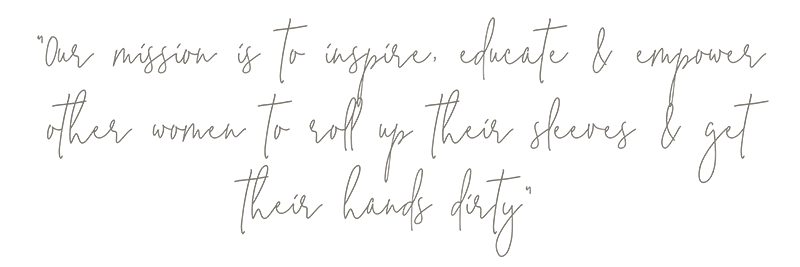 "Our mission is to inspire, educate & empower
other women to roll up their sleeves & get
their hands dirty"